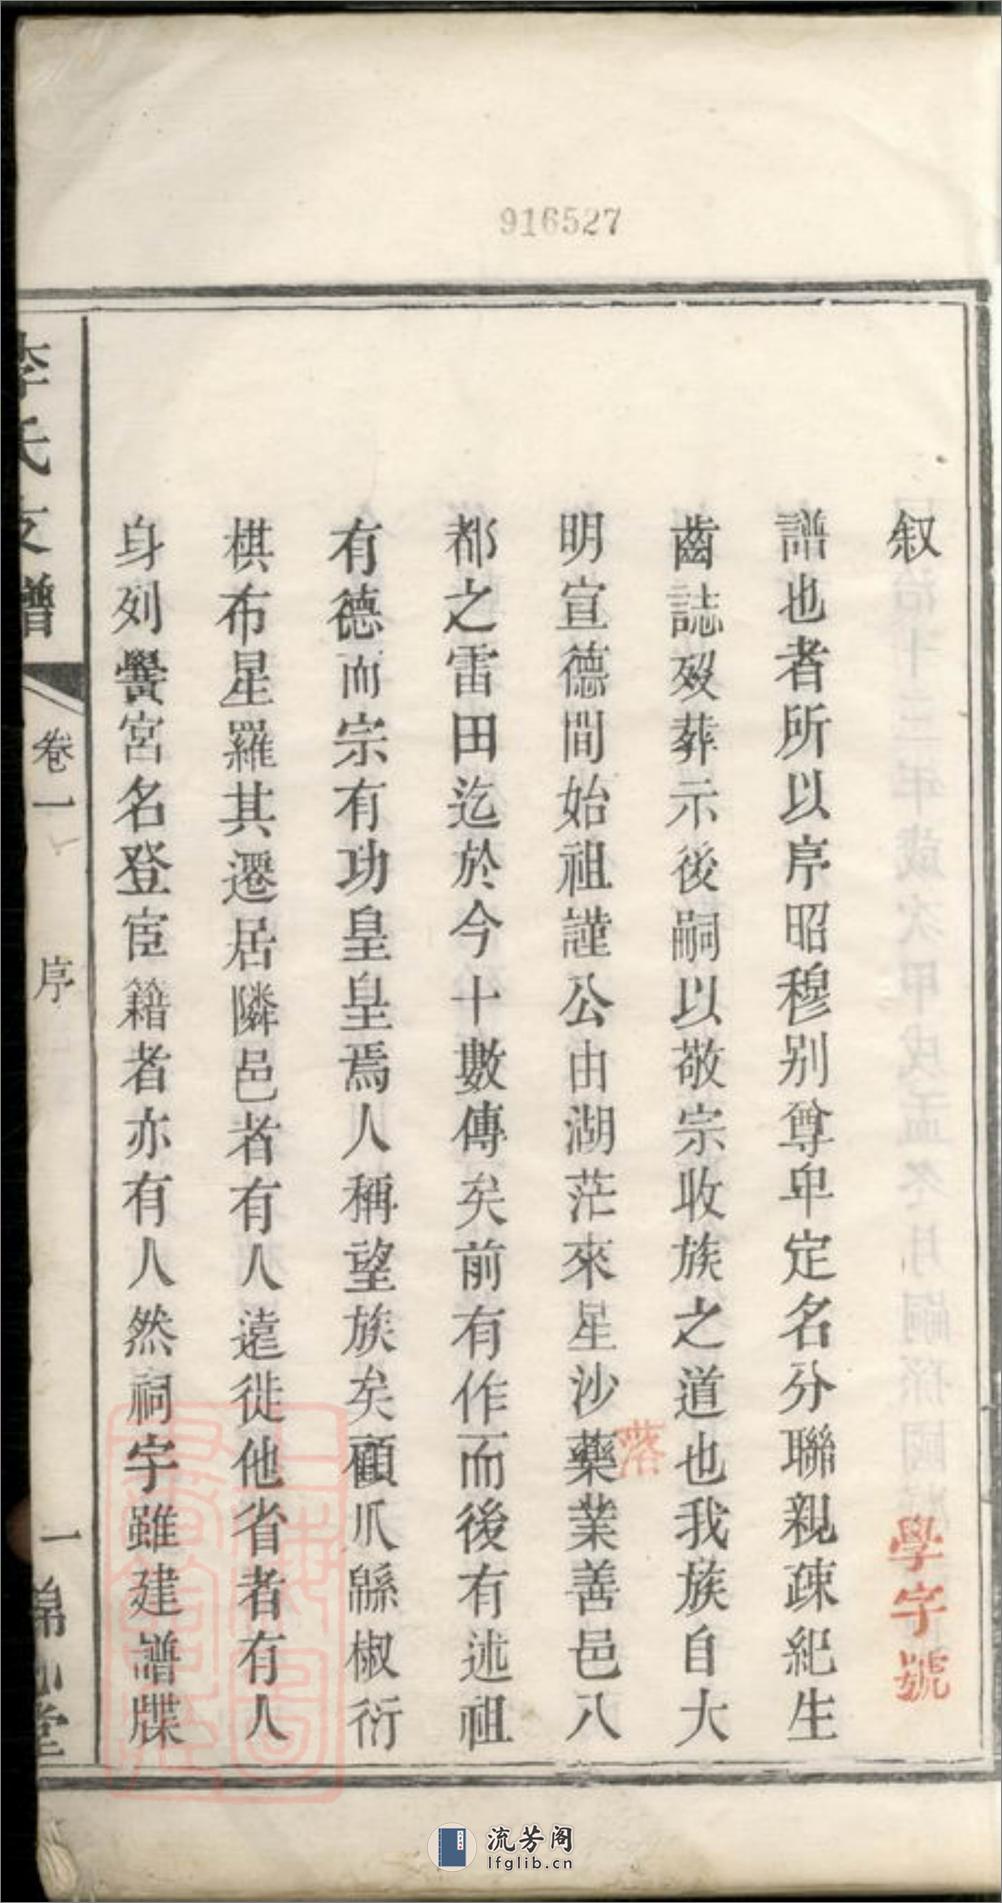 916527
叙
譜也者所以序昭穆別尊卑定名分聯親疎紀生
齒誌歿葬示後嗣以敬宗收族之道也我族自大
明宣德間始祖謹公由湖茫來星沙藥業善邑八
都之雷田迄於今十數傳矣前有作而後有述祖
有德而宗有功皇皇焉人稱望族矣顧瓜緜椒衍
棋布星羅其遷居隣邑者有人遠徙他省者有人
身列黌宮名登宦籍者亦有人然祠宇雖建譜牒
學字號
落
李氏支譜
卷一
序
一
堂
上海圖書館藏
流芳阁
lfglib.cn